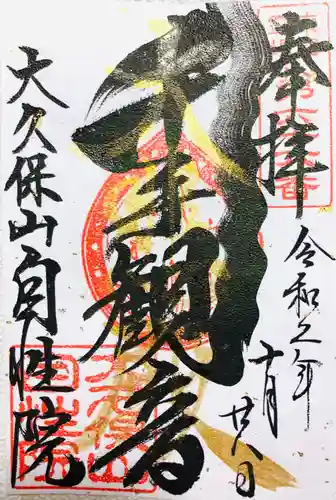 奉拝
令和元年
十月
廿八日
千手観音
大久保山自性院